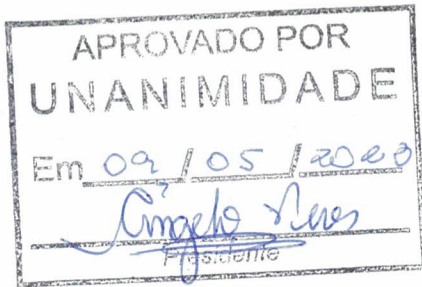 APROVADO POR
UNANIMIDADE
Em 09 / 05 / 2023
Ângelo
Presidente